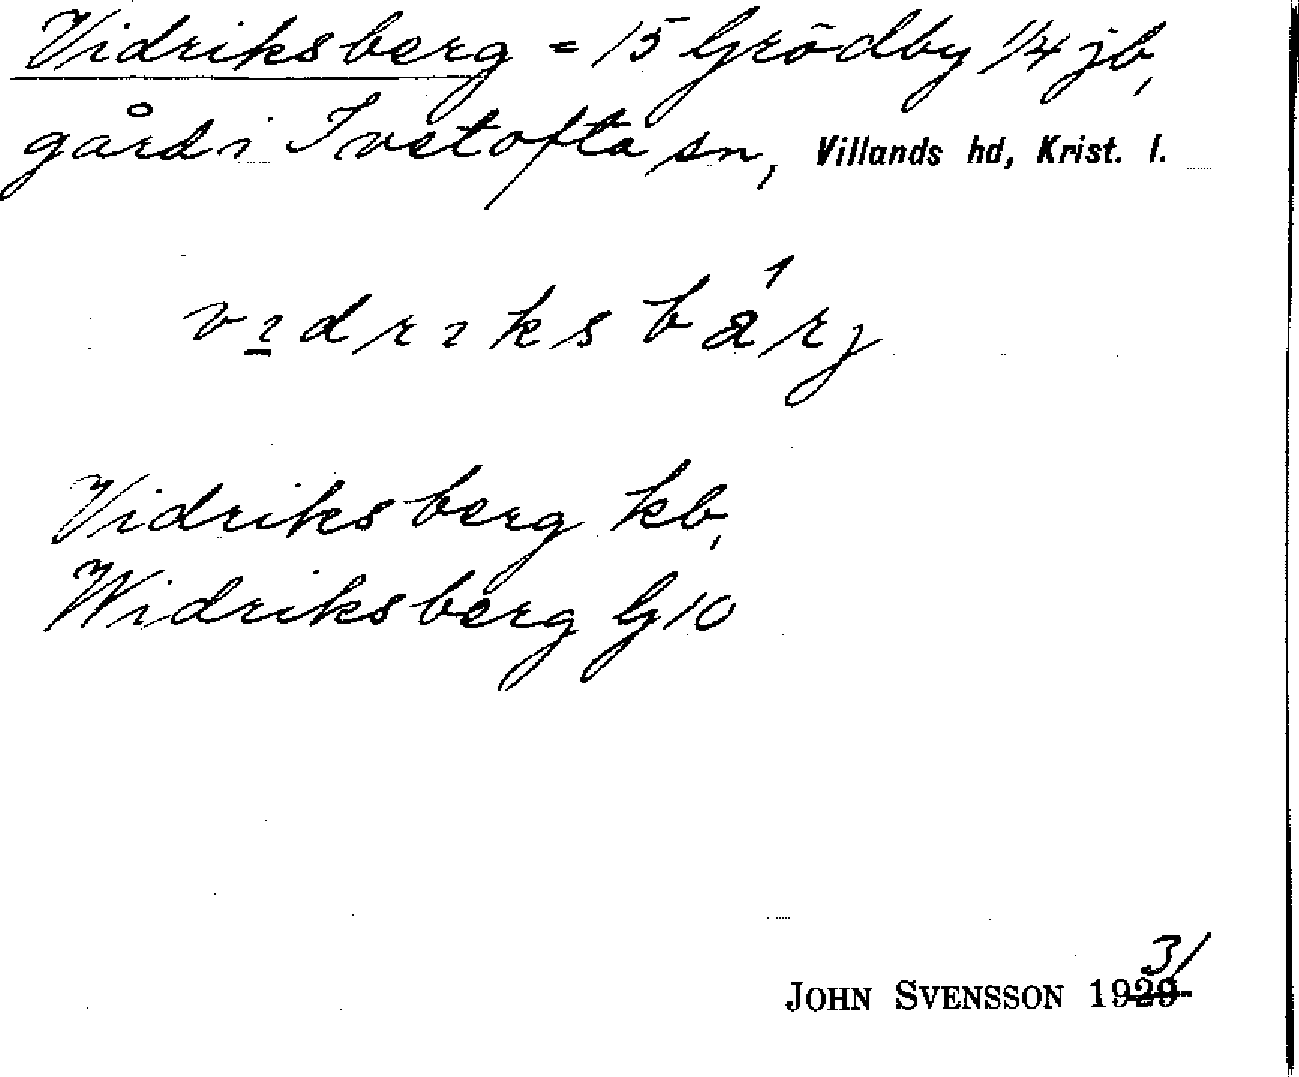 Vidriksberg = 15 Grödby 1/4 jb,
gård i Ivetofta sn, Villands hd, Krist. l.
Vidriksberg kb,
Widriksberg G10
31
JOHN SVENSSON 1929